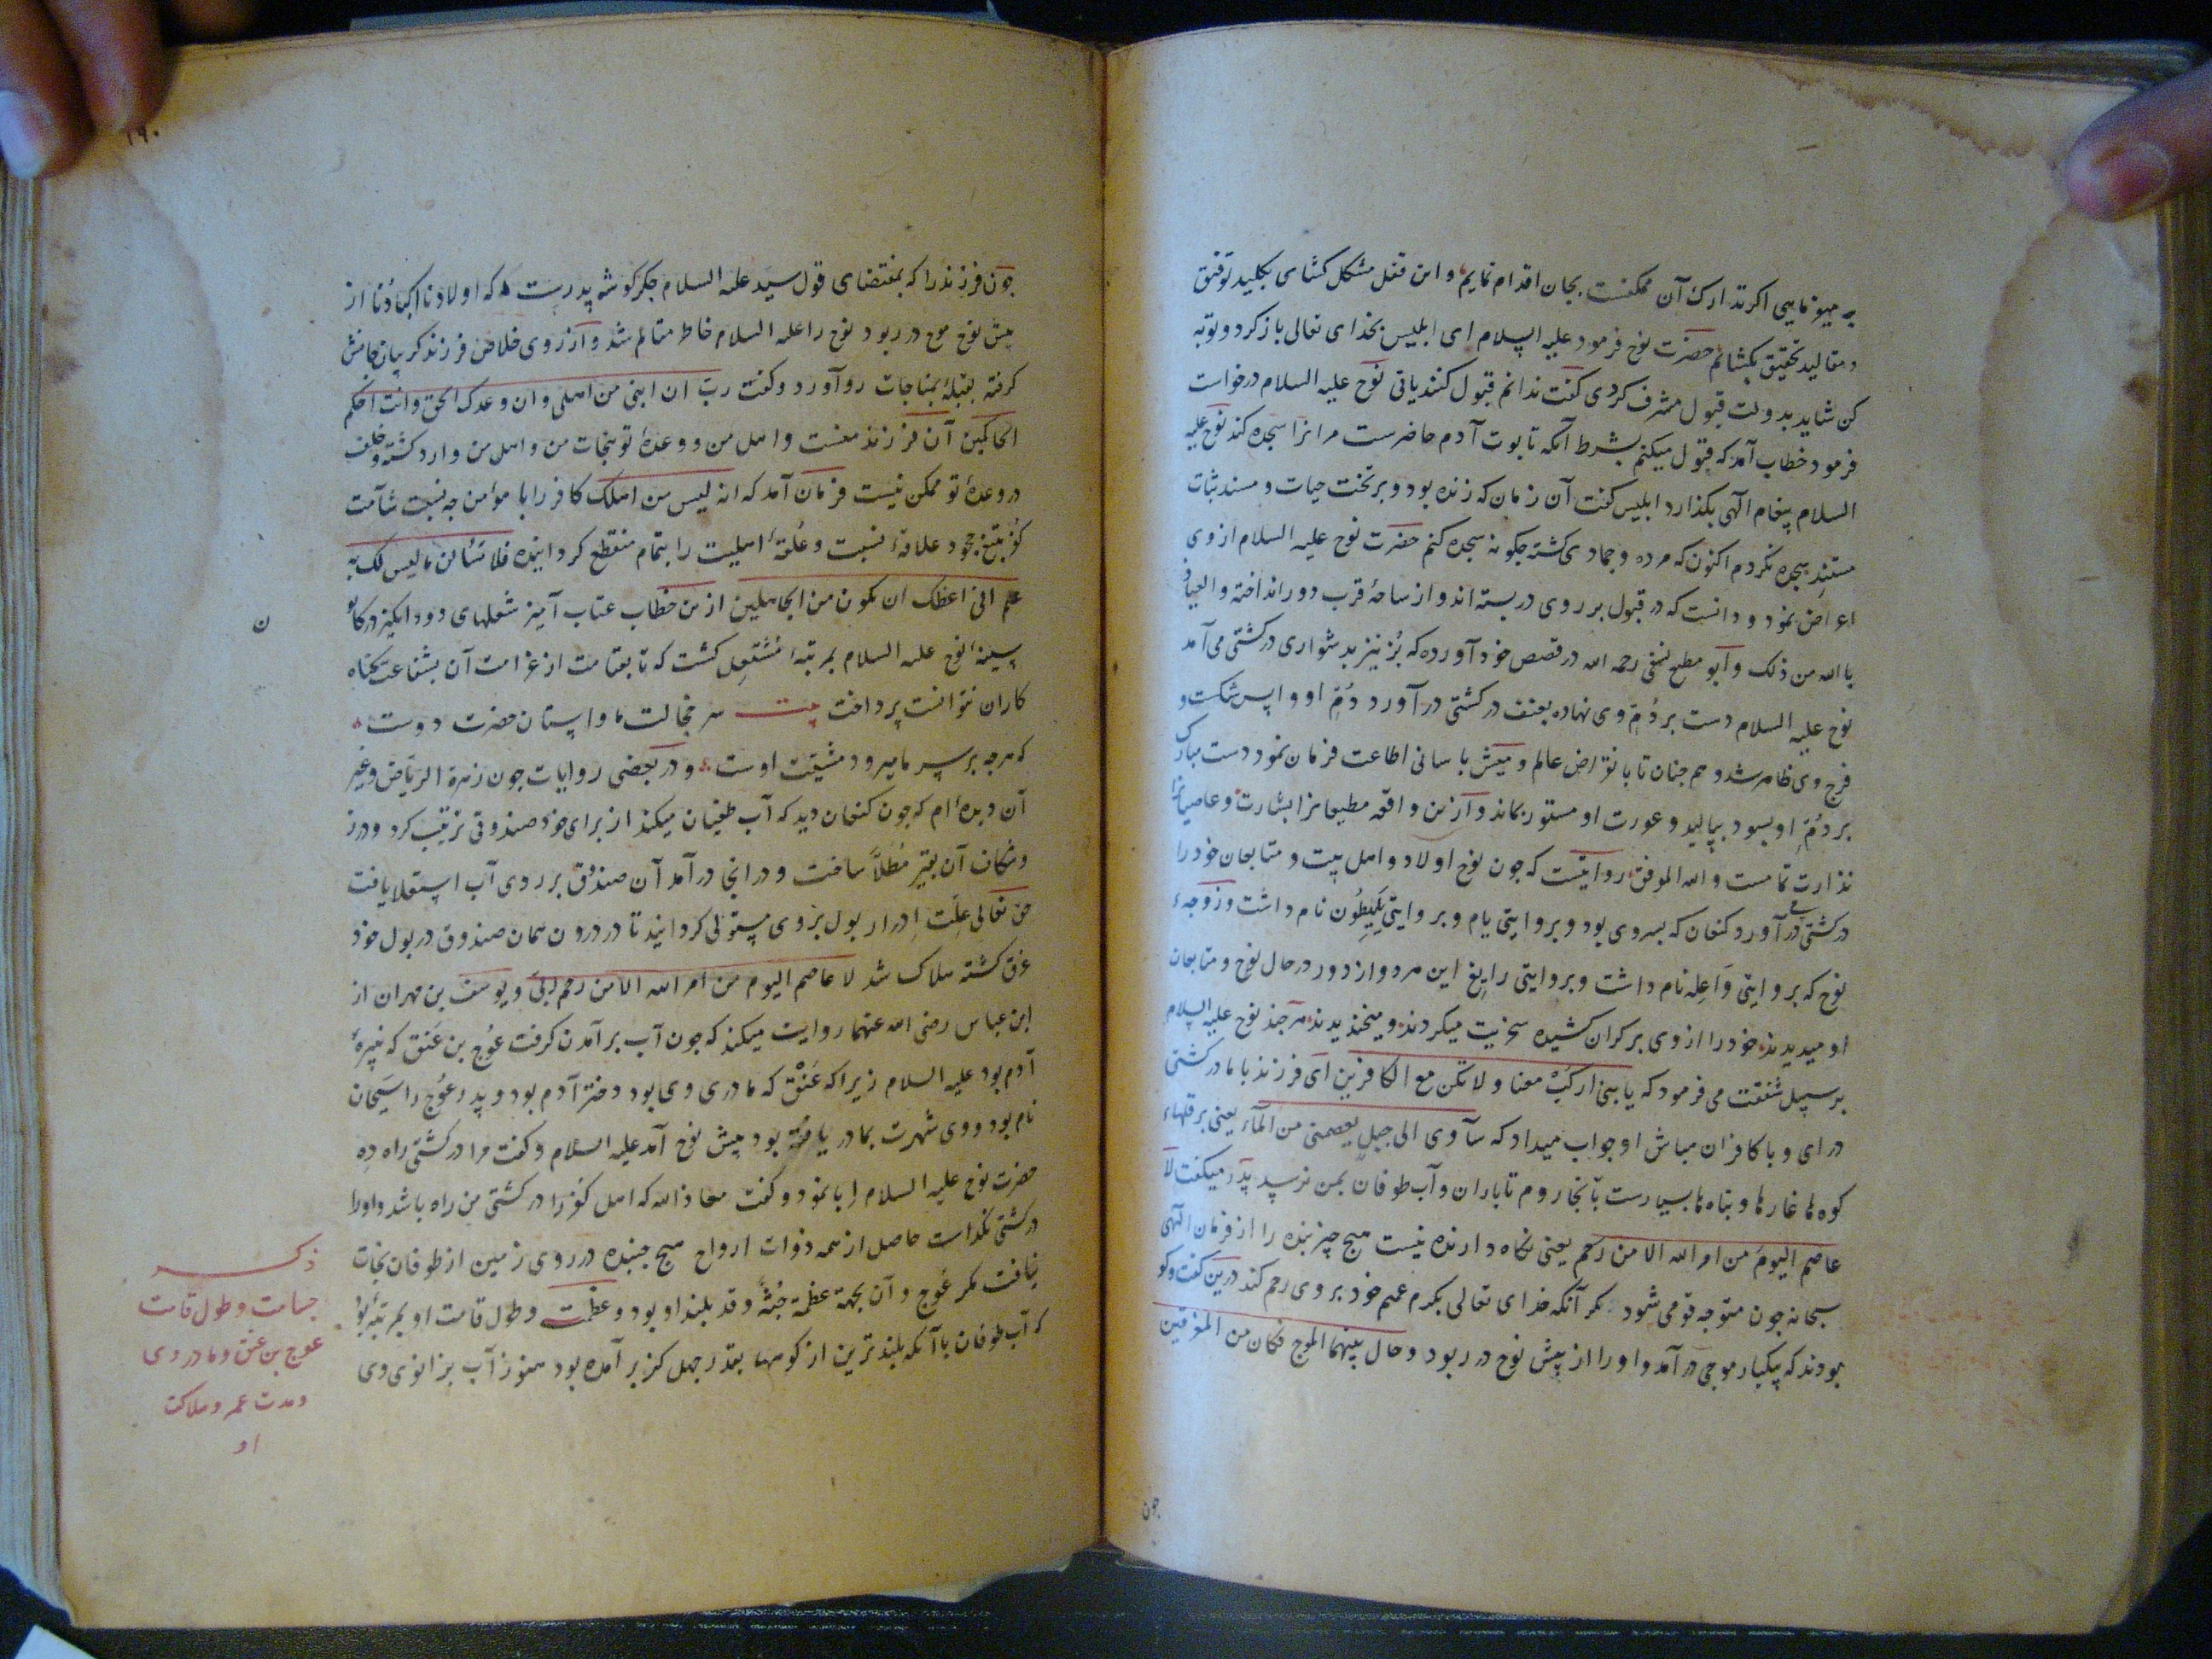 چه میفرمایی اکر تدارک آن ممکنست بجان اقدام نمایم و این قفل مشکل کشای بکلید توفیق
و مقالید تحقیق بکشایم حضرت نوح فرمود علیه السلام ای ابلیس بخدای تعالی باز کرد و توبه
کن شاید بدولت قبول مشرف کردی کفت ندانم قبول کنند یا نی نوح علیه السلام درخواست
فرمود خطاب آمد که قبول میکنم بشرط آنکه تابوت آدم حاضرست مر انرا سجده کند نوح علیه
السلام پیغام الهی بکذارد ابلیس کفت آن زمان که زنده بود و بر تخت حیات و مسند ثبات
مستند سجده نکردم اکنون که مرده و جمادی کشته جکونه سجده کنم حضرت نوح علیه السلام از وی
اعراض نمود و دانست که در قبول بر روی در بسته اند و از ساحۀ قرب دور انداخته و العیاذ
بالله من ذلک و ابو مطیع نسفی رحمه الله در قصص خود آورده که بُز نیز بدشواری در کشتی می آمد
نوح علیه السلام دست بر دُمّ وی نهاده بعنف در کشتی در آورد دُمّ او واپس شکست و
فرج وی ظاهر شد و هم جنان تا بانقراض عالم و میش باسانی اطاعت فرمان نمود دست مبارک
بر دُمّ او بسود بمالید و عورت او مستور بماند و ازین واقعه مطیعانرا بشارت و عاصیانرا
نذارت تمامست والله الموفق روایتست که جون نوح اولاد و اهل بیت و متابعان خود را
در کشتی در آورد کنعان که پسر وی بود و بروایتی یام و بروایتی نام داشت و زوجهء
نوح که بروایتی وَاعِله نام داشت و بروایتی این هر دو از دور در حال نوح و متابعان
او میدیدند خود را از وی بر کران کشیده سخریت میکردند و میخندیدند هر جند نوح علیه السلام
بر سبیل شفقت می فرمود که یا بنی ارکبْ معنا و لا تکن مع الکافرین ای فرزند با ما در کشتی
در ای و با کافران مباش او جواب میداد که سآوی الی جبل یعصمنی من المآء یعنی بر قلهاء
کوه ها غارها و پناه ها بسیارست بآنجا روم تا باران و آب طوفان بمن نرسد پدر میکفت لا
عاصم الیوم من امر الله الا من رحم یعنی نکاه دارنده نیست هیج جیز بنده را از فرمان الهی
سبحانه جون متوجه قومی شود مکر آنکه خدای تعالی بکرم عمیم خود بر وی رحم کند درین کفت و کو
بودند که یکبار موجی در آمد و او را از پیش نوح در ربود و حال بینهما الموج فکان من المغرقین
جون
۱۹۰
جون فرزند را که بمقتضای قول سید علیه السلام جکر کوشه پدرست که اولادنا اکبادُنا از
پیش نوح موج در ربود نوح را علیه السلام خاطر متالم شد و آرزوی خلاص فرزند کریبان جانش
کرفته بقبلۀ مناجات رو آورد و کفت رب ان ابنی من اهلی و ان وعدک الحق و انت احکم
الحاکمین آن فرزند منست و اهل من و وعدۀ تو بنجات من و اهل من وارد کشته و خلف
در وعدۀ تو ممکن نیست فرمان آمد که انه لیس من اهلک کافر را با مؤمن جه نسبت شآمت
کفر بتیغ جحود علاقۀ نسبت و عُلقۀ اهلیت را بتمام منقطع کردانیده فلا تسألن ما لیس لک به
علم انی اعظک ان تکون من الجاهلین ازین خطاب عتاب آمیز شعلهای دود انکیز در کانون
سینۀ نوح علیه السلام بمرتبۀ مشتعل کشت که تا بقیامت از غرامت آن بشفاعت کناه
کاران نتوانست پرداخت بیت سر خجالت ما و استان حضرت دوست
که هرجه بر سر ما میرود مشیّت اوست و در بعضی روایات جون زهرة الریاض و غیر
آن دیده ام که جون کنعان دید که آب طغیان میکند از برای خود صندوقی ترتیب کرد و درز
و شکاف آن بقیر مُطلاّ ساخت و در انجا در آمد آن صندوق بر روی آب استعلا یافت
حق تعالی علّت ادرار بول بر وی مستولی کردانید تا در درون همان صندوق در بول خود
غرق کشته هلاک شد لا عاصم الیوم من امر الله الا من رحم ربی و یوسف بن مهران از
ابن عباس رضی الله عنهما روایت میکند که جون آب برآمدن کرفت عُوج بن عَنَق که نبیرۀ
آدم بود علیه السلام زیرا که عَنَق که مادری وی بود دختر آدم بود و پدر عُوج را سَیحان
نام بود و وی شهرت بمادر یافته بود پیش نوح آمد علیه السلام و کفت مرا در کشتی راه ده
حضرت نوح علیه السلام ابا نمود و کفت معاذ الله که اهل کفر را در کشتی من راه باشد و اورا
در کشتی نکذاشت حاصل از همه ذوات ارواح هیج جنبنده در روی زمین از طوفان نجات
نیافت مکر عُوج و آن بجهة عظمة جُثّه و قد بلند او بود و عظمت و طول قامت او بمرتبۀ بود
که آب طوفان با آنکه بلندترین از کوهها بقدر جهل کز بر آمده بود هنوز آب بزانوی وی
ن
ذکر
جسامت و طول قامت
عوج بن عنق و مادر وی
و مدت عمر و هلاکت
او